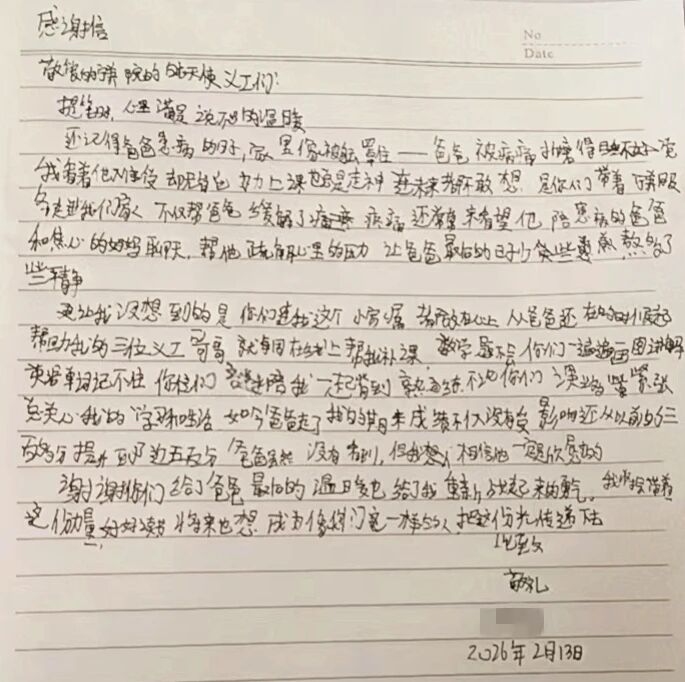 感谢信
No
Date
敬爱的 院的 天使义工们:
提笔时,心里满是说不出的温暖
还记得爸爸患病的日子,家里像被 罩住——爸爸被病痛折磨得睡不好觉
我看着他 却 上课也总是走神 连未来都不敢想 是你们带着
走进我们家 不仅帮爸爸缓解了 疼痛 还常常来看望他 陪患病的爸爸
和焦心的妈妈聊天,帮他疏解心里的压力 让爸爸最后的日子少 些 多了
些平静
更让我没想到的是 你们连我这个小 都放在心上 从爸爸还在的时候起
帮助我的三位义工哥哥 就 在线上帮我补课 数学 不会你们一遍遍画图讲解
英语单词记不住 你们 陪我一起背到 你们
总关心我的学习和生活 如今爸爸走了 我的期末成绩不仅没有受影响还从以前的三
百多分提升到了近五百分 爸爸虽然没有看到,但我想 相信他一定会欣慰的
谢谢你们给了爸爸最后的温暖也给了我重新 起来的勇气。我 带着
这份力量好好读书 将来也想成为像你们一样的人 把这份光传递下去
此致
敬礼
2026年2月13日